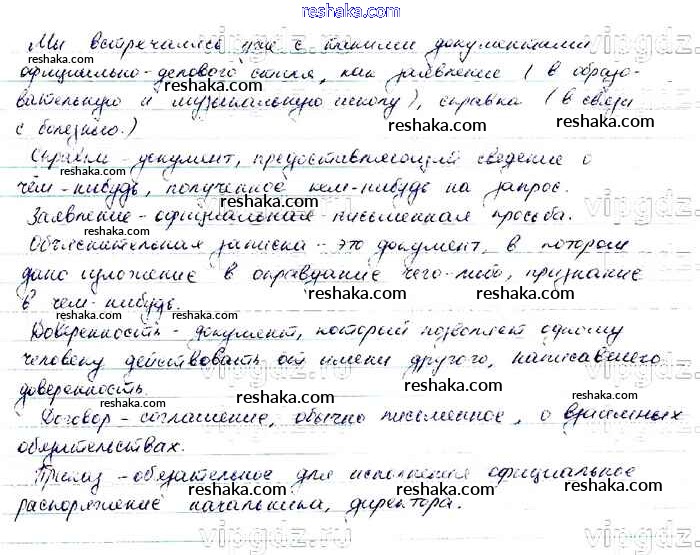 reshaka.com
Мы встречались уже с такими документами
официально-делового стиля, как заявление (в образо-
вательную и музыкальную школу), справка (в связи
с болезнью.)
reshaka.com
reshaka.com
Справка - документ, предоставляющий сведение о
чём-нибудь, полученное кем-нибудь на запрос.
reshaka.com
Заявление - официальная письменная просьба.
reshaka.com
Объяснительная записка - это документ, в котором
дано изложение в оправдание чего-либо, признание
в чем-нибудь.
reshaka.com
reshaka.com
Доверенность - документ, который позволяет одному
человеку действовать от имени другого, написавшего
доверенность.
reshaka.com
reshaka.com
Договор - соглашение, обычно письменное, о взаимных
обязательствах.
reshaka.com
reshaka.com
Приказ - обязательное для исполнения официальное
распоряжение начальника, директора.
reshaka.com
reshaka.com
vipgdz.ru